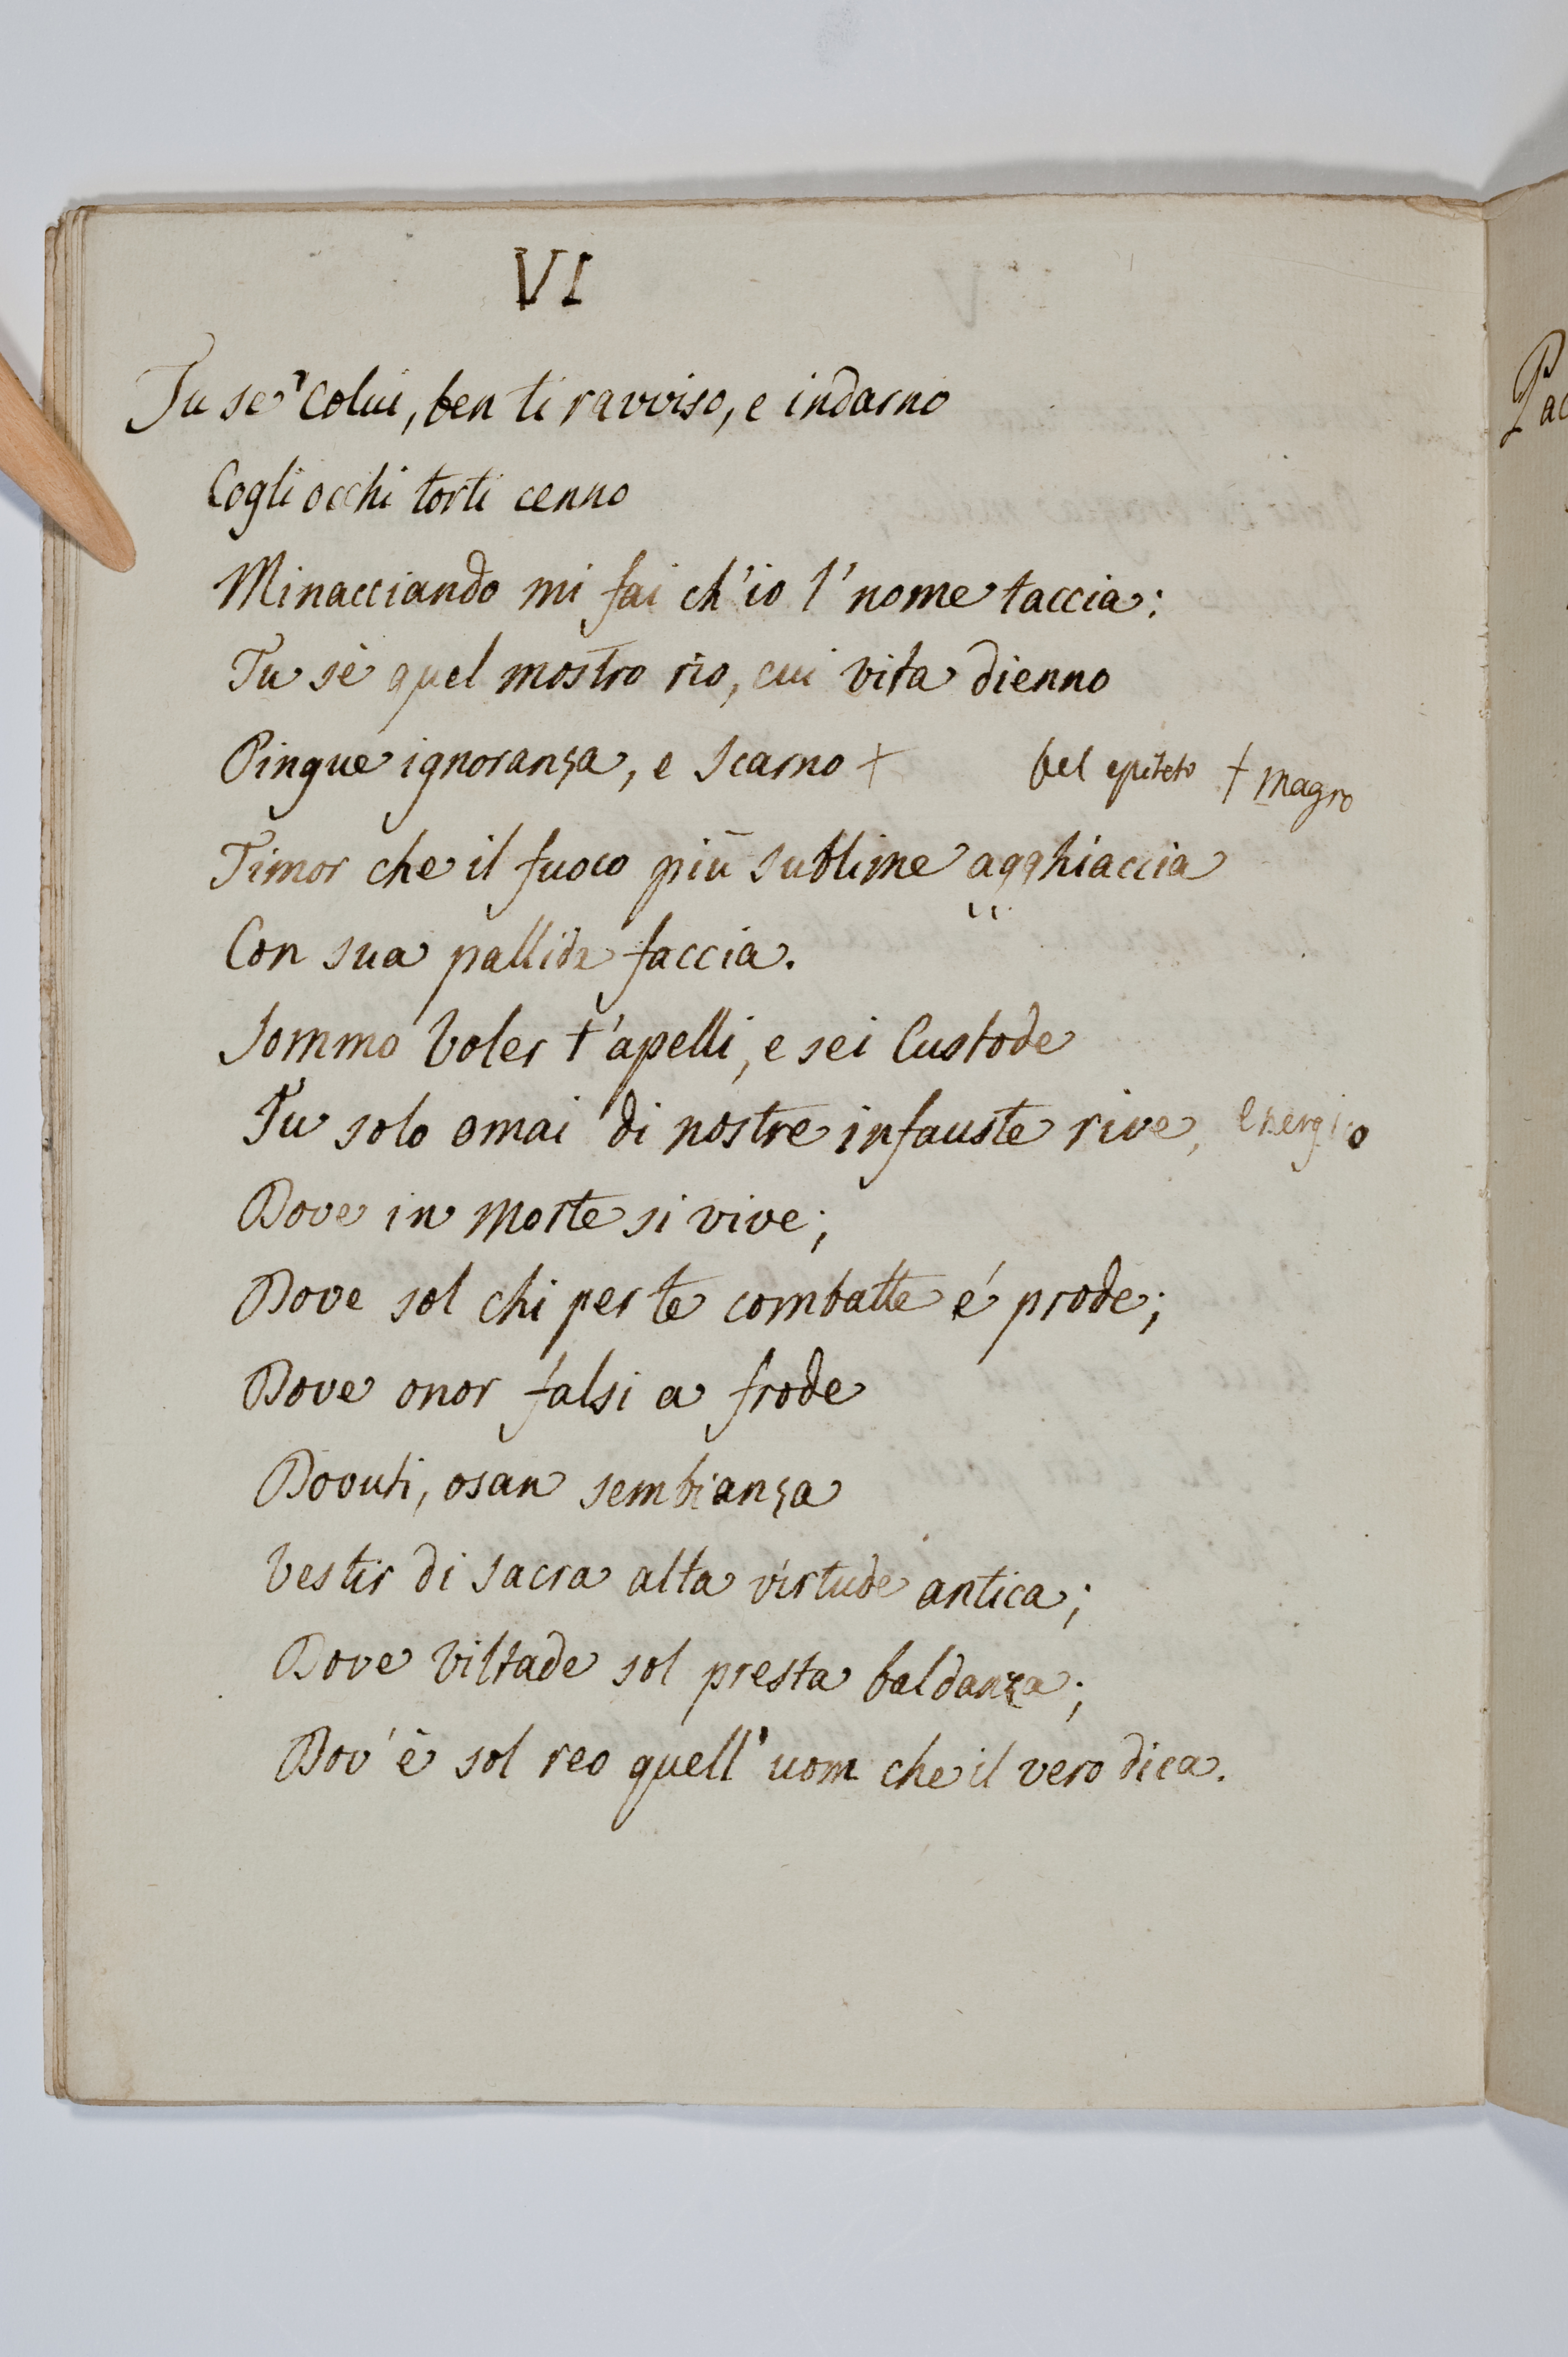 VI
Tu se' colui, ben ti ravviso, e indarno
Cogli occhi torti cenno
Minacciando mi fai ch'io l'nome taccia:
Tu sè quel mostro rio, cui vita dienno
Pingue ignoranza, e scarno + bel epiteto + magro
Timor che il fuoco più sublime agghiaccia
Con sua pallida faccia.
Sommo Voler t'apelli, e sei Custode
Tu solo omai di nostre infauste rive,
Dove in morte si vive;
Dove sol chi per te combatte é prode;
Dove onor falsi a frode
Dovuti, osan sembianza
Vestir di sacra alta virtude antica;
Dove viltade sol presta baldanza;
Dov'è sol reo quell'uom che il vero dica.